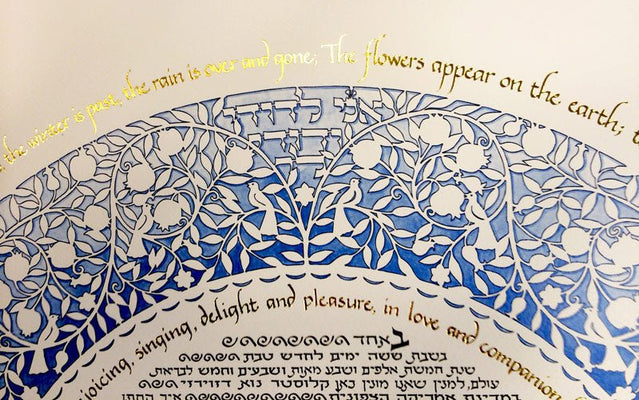 the winter is past, the rain is over and gone; The flowers appear on the earth;
אני לדודי
ודודי
לי
ejoicing, singing, delight and pleasure, in love and companion
באחד
בשבת ששה ימים לחדש טבת
שנת חמשת אלפים ושבע מאות ושבעים וחמש לבריאת
עולם, למנין שאנו מונין כאן קלוסטר נוא דזוירזי
במדינת אמריקה הצפונית איך החתן